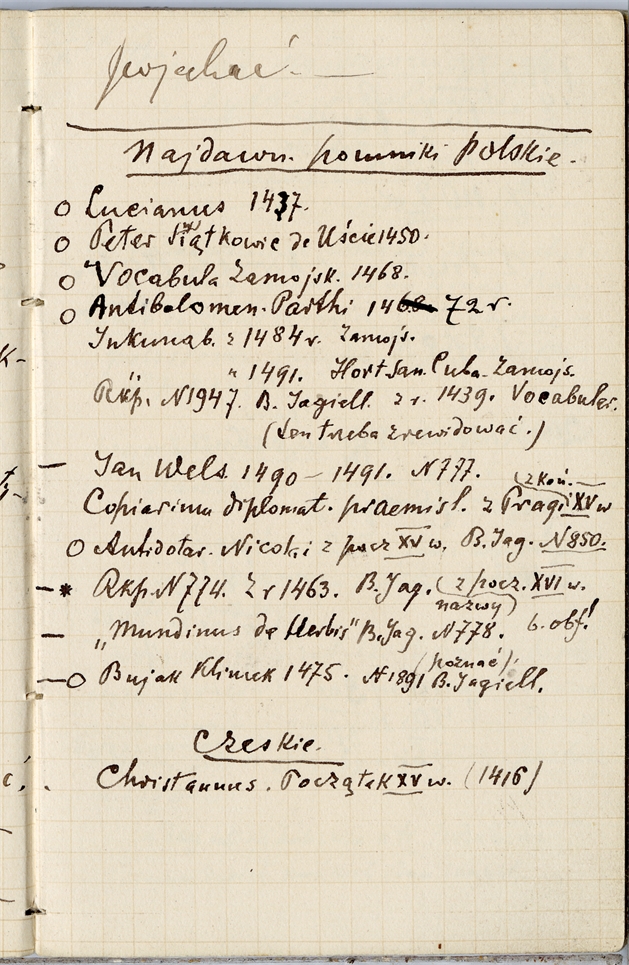 pojechać. —
Najdawn. pomniki Polskie.
o Lucianus 1437.
o Peter Siątkowic de Uście 1450.
o "Vocabula Zamojsk. 1468.
o Antibolomen. Parthi 1468 72 r.
Inkunab. z 1484 r. Zamojs.
" " 1491. Hort San. Cuba. Zamojs.
Rkp. N1947. B. Jagiell. z r. 1439. Vocabular.
(ten trzeba zrewidować.)
— Jan Wels 1490 – 1491. N777.
(z koń.
Copiarium diplomat. praemisl. z Pragi XV w
o Antidotar. Nicolai z pocz XV w. B. Jag. N850.
— * Rkp. N774. z r 1463. B. Jag. (z pocz. XVI w.
nazwy)
— „Mundinus de Herbis" B. Jag. N778. b. obf!
(poznać)
— o Bujak Klimek 1475. N1891 B. Jagiell.
Czeskie.
Christannus. Początek XV w. (1416)